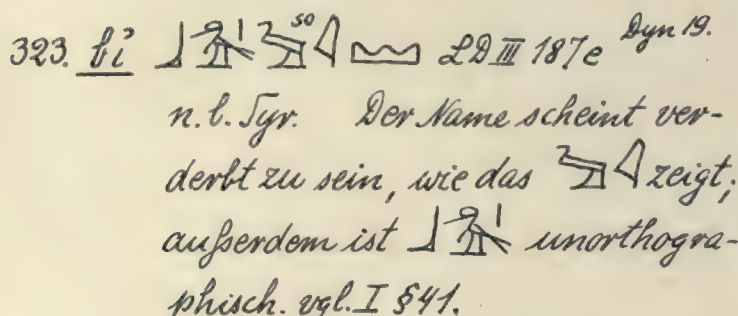 323. bỉ so LD III 187e Dyn 19.
n. l. Syr. Der Name scheint ver-
derbt zu sein, wie das zeigt;
außerdem ist unorthogra-
phisch. vgl. I §41.